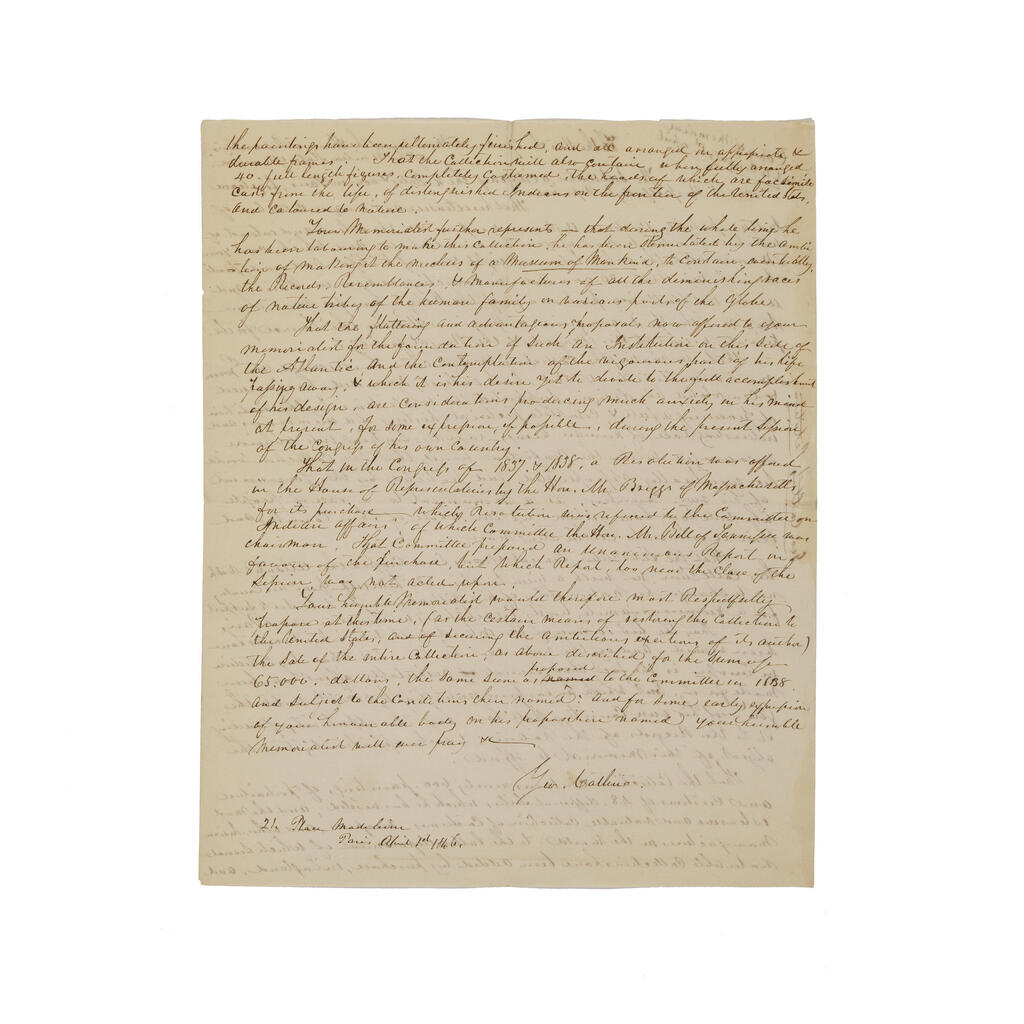 the paintings have been ultimately finished, and all arranged in appropriate &
durable frames. That the Collection will also contain, when fully arranged
40. full length figures, Completely Costumed, the heads of which are facsimile
Casts from the life, of distinguished Indians on the frontier of the United States,
and coloured to nature.
Your Memorialist further represents — that during the whole time he
has been labouring to make this Collection, he has been stimulated by the ambi
-tion of making it the nucleus of a Museum of Mankind, to contain eventually,
the Records, Resemblances, & Manufactures of all the diminishing races
of native tribes of the human family in various parts of the Globe.
That the flattering and advantageous proposals now offered to your
Memorialist for the foundation of such an Institution on this side of
the Atlantic and the Contemplation of the vigourous part of his life
passing away, & which it is his desire yet to devote to the full accomplishment
of his design, are Considerations producing much anxiety in his mind
at present, for some expression, if possible, during the present Session
of the Congress of his own Country.
That in the Congress of 1837. & 1838, a Resolution was offered
in the House of Representatives by the Hon. Mr. Briggs of Massachusetts
for its purchase, which Resolution was referred to the Committee on
Indian affairs, of which Committee the Hon. Mr. Bell of Tennessee was
chairman. That Committee prepared an Unanimous Report in
favour of the purchase, but which Report, too near the Close of the
Session, was not acted upon.
Your humble Memorialist would therefore most Respectfully
propose at this time, (as the certain means of restoring the Collection to
the United States, and of securing the ambitious exertions of its author)
the Sale of the entire Collection, as above described, for the Sum of
65.000. dollars, the same sum as named proposed to the Committee in 1838
and subject to the Conditions then named: And for some early expression
of your honourable body on his proposition named your humble
Memorialist will ever pray &c
Geo. Catlin.
21. Place Madeleine
Paris, April 1st 1846.